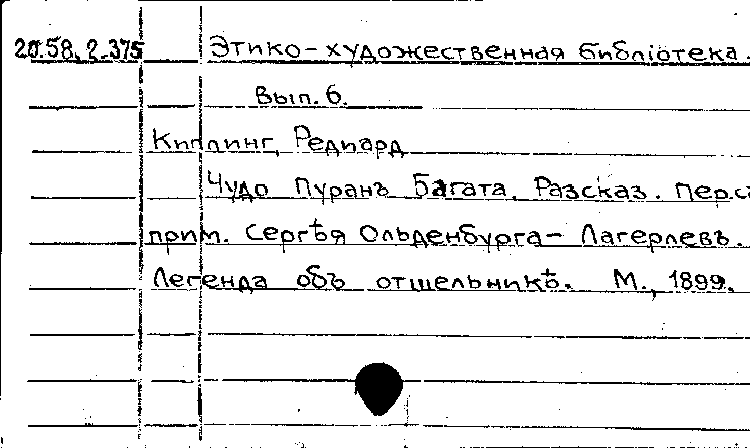 20.58.2.375 Этико-художественная библіотека.
Вып. 6.
Киплинг, Редиард
Чудо Пуранъ Багата. Разсказ. Перев.
прим. Сергѣя Ольденбурга - Лагерлевъ.
Легенда объ отшельникѣ. М., 1899.